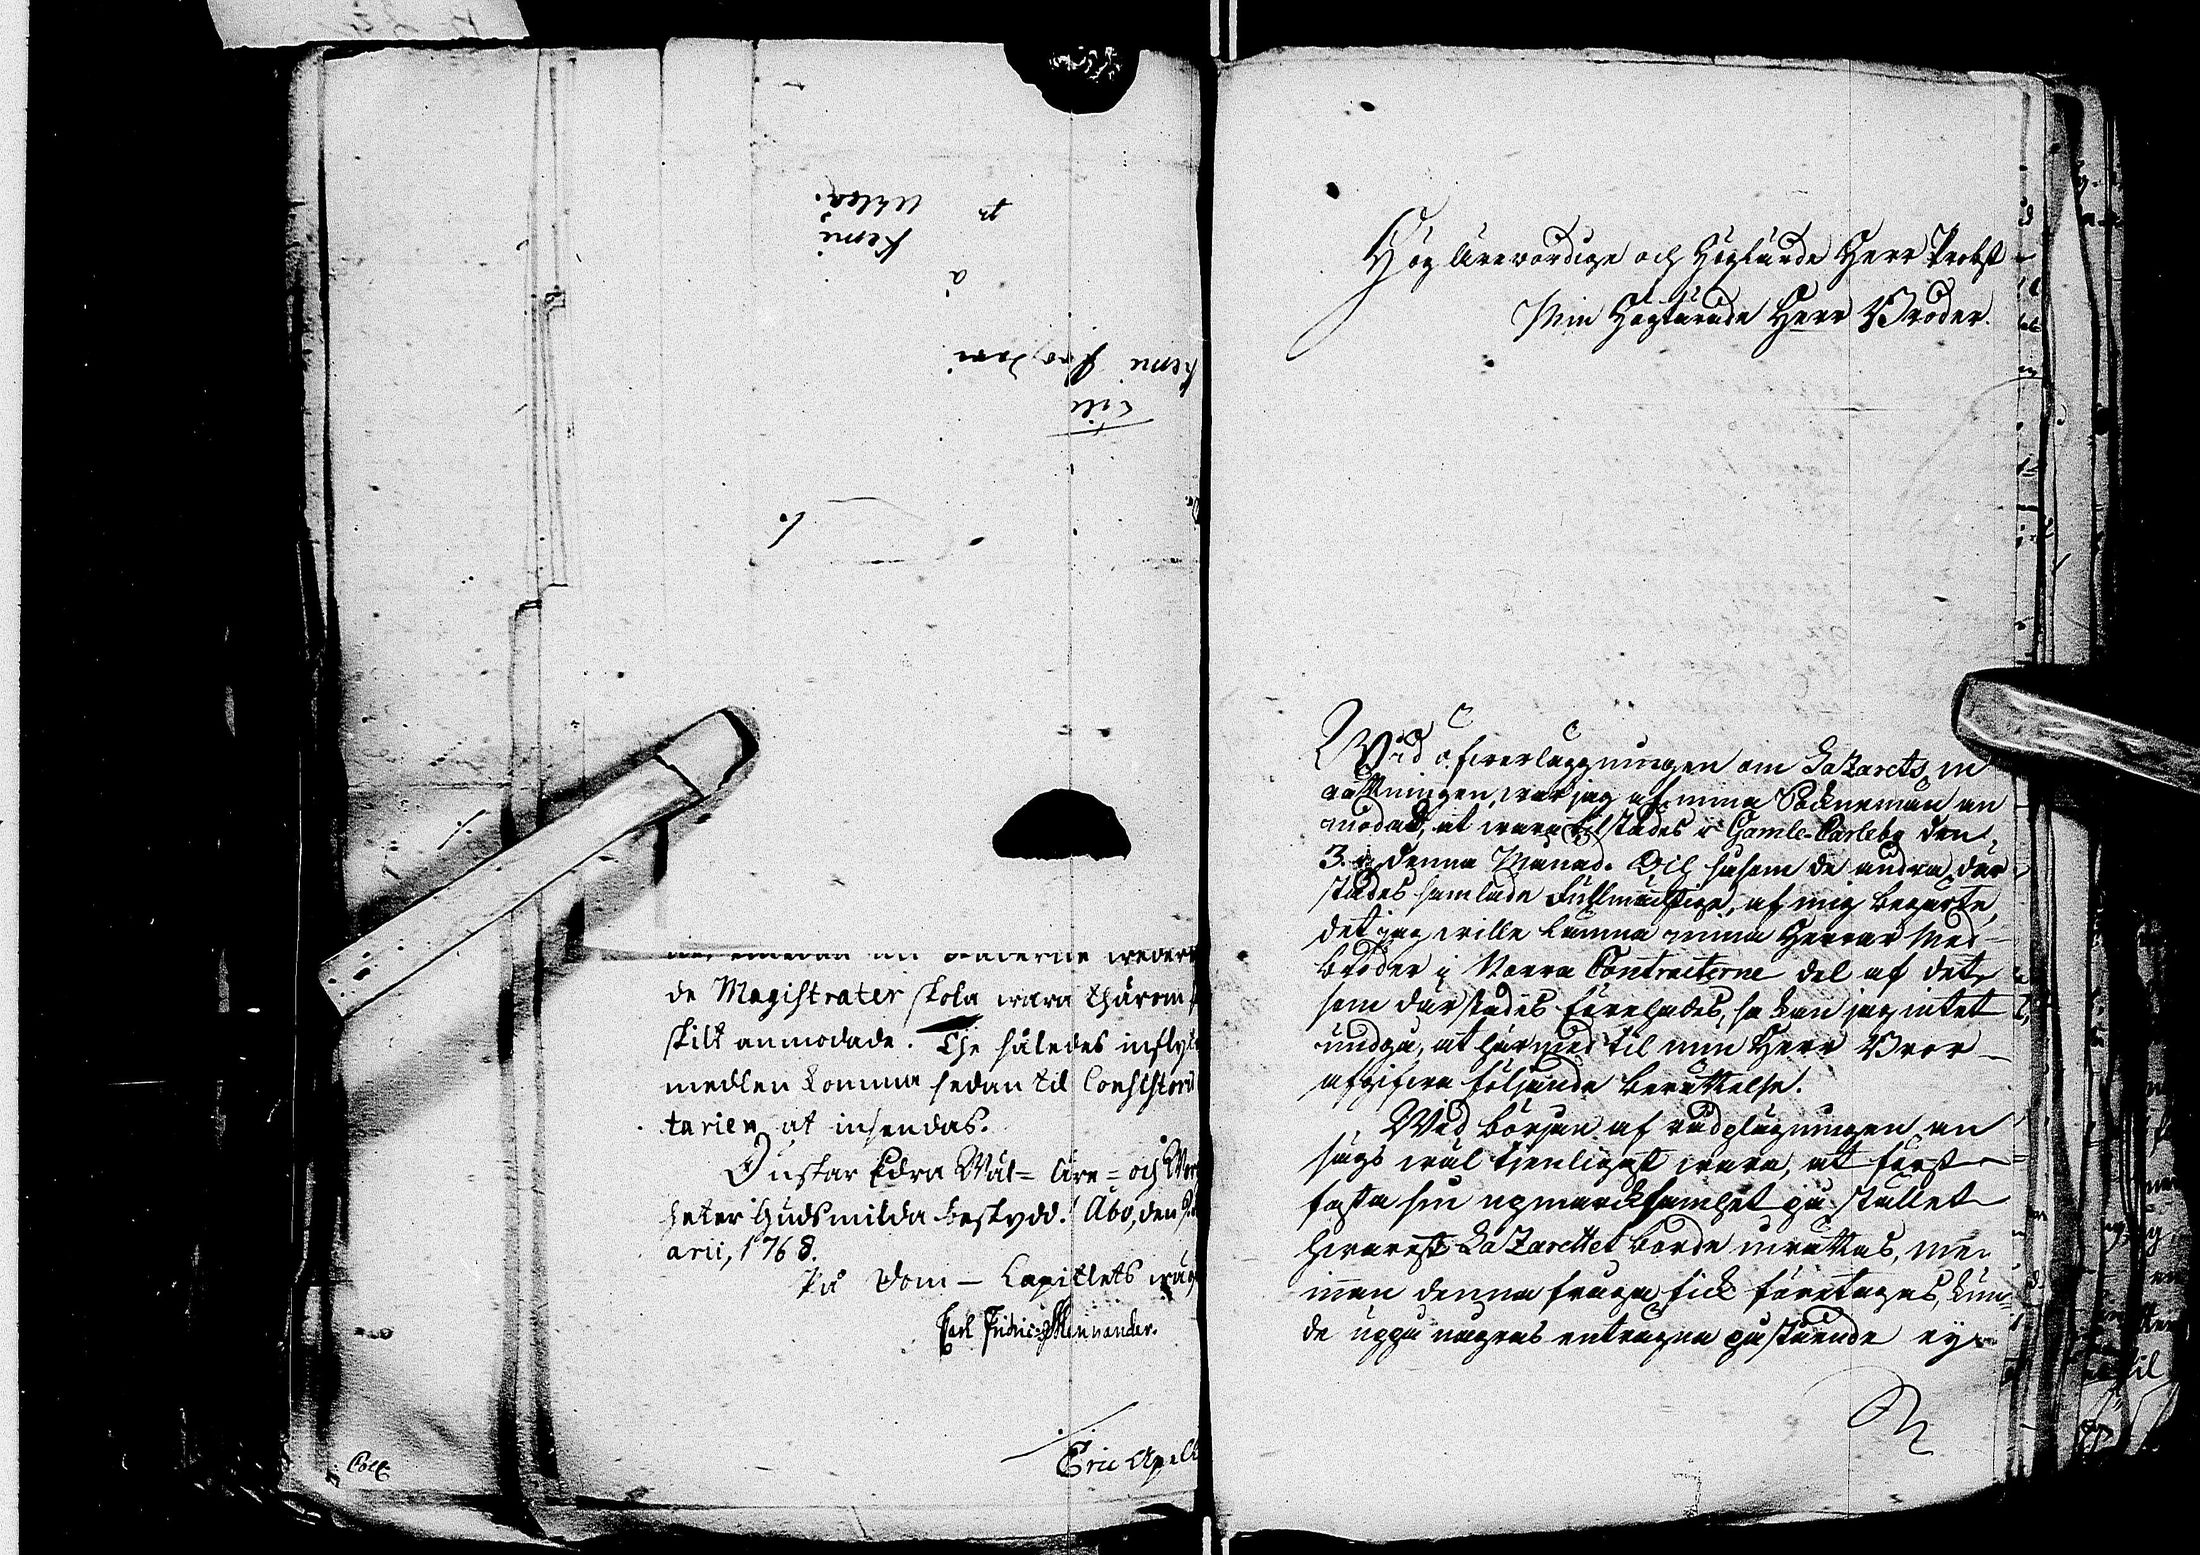 de Magistrater skola wara thärom
skilt anmodade. The således inflyt
medlen komma sedan til Consistorii
tarien at insendas.
Önskar Edra Wäl- Äre- och Wer
heter Guds milda beskydd! Åbo, den
arii, 1768.
På Dom-Capitlets wäg
Carl Fridric Mennander.
Eric Apell
Til
Kemi
Kemi
Uhleå.
Höglärewördige och Höglärde Herr Probst
Min Höglärade Herr Broder.
Wid öfwerläggningen om Lazarets in
rättningen, war jag af mina Sockneman an
modad, at wara tilstädes i Gamle-Carleby den
3. i denna Månad. Och såsom de andra där
städes samlade Fullmägtige, af mig begärte,
det jag wille lämna mina Herrar Med-
bröder i Norra Contracterne del af det,
som därstädes förehades, så kan jag intet
undgå, at härmed til min Herr Bror
afgifwa följande berättelse.
Wid början af rådplägningen an
sågs wäl tjenligast wara, at först
fästa sin upmärcksamhet på stället
hwarest Lazarettet borde inrättas, men
innan denna fråga fick företagas, kun-
de uppå någras enträgna påstående ey